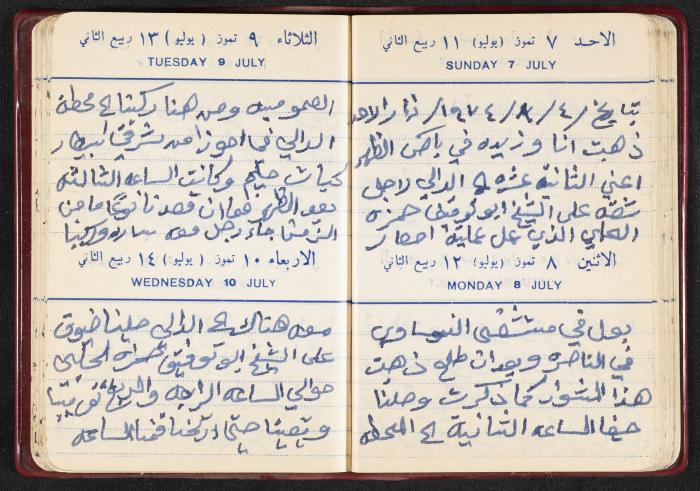 الاحد ٧ تموز (يوليو) ١١ ربيع الثاني
SUNDAY 7 JULY
بتاريخ /٤/ ٨/ ١٩٧٤/ نهار الاحد
ذهبت انا وزيده في باص الظهر
اعني الثانية عشره الى الدالي لاجل
على الشيخ ابو توفيق حمزه
الحلبي الذي عمل عملية احصار
الاثنين ٨ تموز (يوليو) ١٢ ربيع الثاني
MONDAY 8 JULY
بول في مستشفى النمساوي
في الناصره وبعدان طلع ذهبت
هذا المشوار كما ذكرت وصلنا
حيفا الساعه الثانية الى المحطه
الثلاثاء ٩ تموز (يوليو) ١٣ ربيع الثاني
TUESDAY 9 JULY
العموميه ومن هنا ركبنا الى محطة
الدالي في
وكانت الساعه الثالثه
بعد الظهر
الزمن جاء رجل معه سياره وركبنا
الاربعاء ١٠ تموز (يوليو) ١٤ ربيع الثاني
WEDNESDAY 10 JULY
معه هناك الى الدالي صلينا ضيوف
على الشيخ ابو توفيق حمزه الحلبي
حوالي الساعه الرابعه والربع تقريبا
وبقينا حتى قمنا الساعه